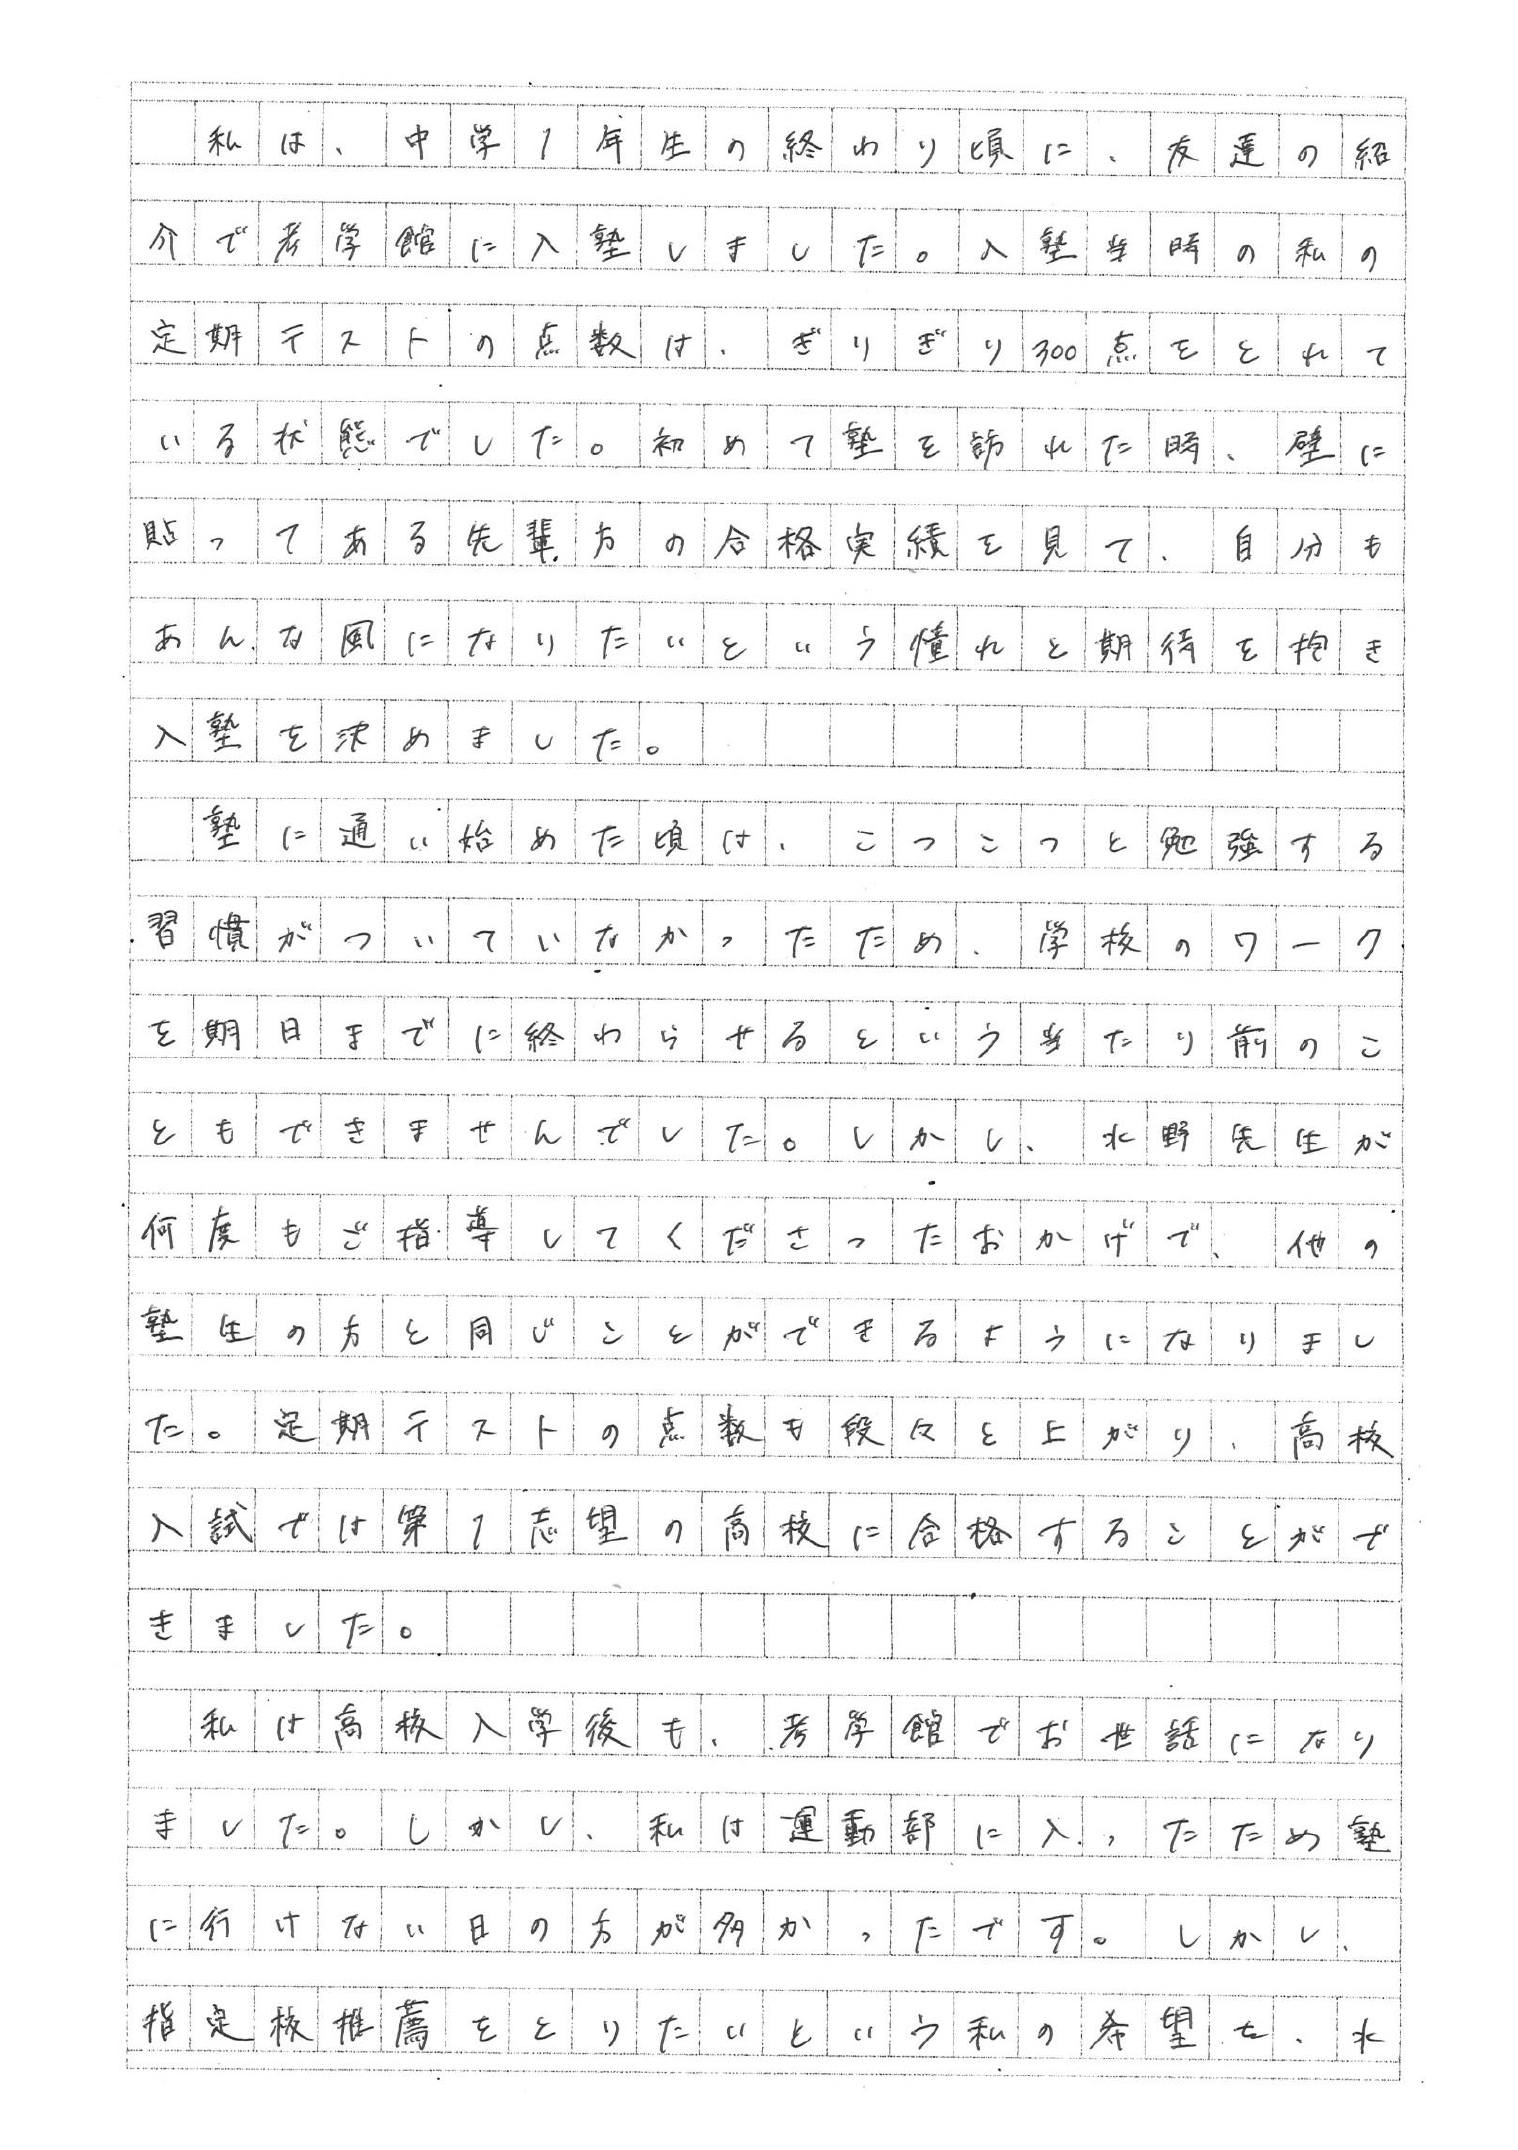 私は、中学1年生の終わり頃に、友達の紹
介で考学館に入塾しました。入塾当時の私の
定期テストの点数は、ぎりぎり300点をとれて
いる状態でした。初めて塾を訪れた時、壁に
貼ってある先輩方の合格実績を見て、自分も
あんな風になりたいという憧れと期待を抱き
入塾を決めました。
　塾に通い始めた頃は、こつこつと勉強する
習慣がついていなかったため、学校のワーク
を期日までに終わらせるという当たり前のこ
ともできませんでした。しかし、水野先生が
何度もご指導してくださったおかげで、他の
塾生の方と同じことができるようになりまし
た。定期テストの点数も段々と上がり、高校
入試では第1志望の高校に合格することがで
きました。
　私は高校入学後も、考学館でお世話になり
ました。しかし、私は運動部に入ったため塾
に行けない日の方が多かったです。しかし、
指定校推薦をとりたいという私の希望を、水